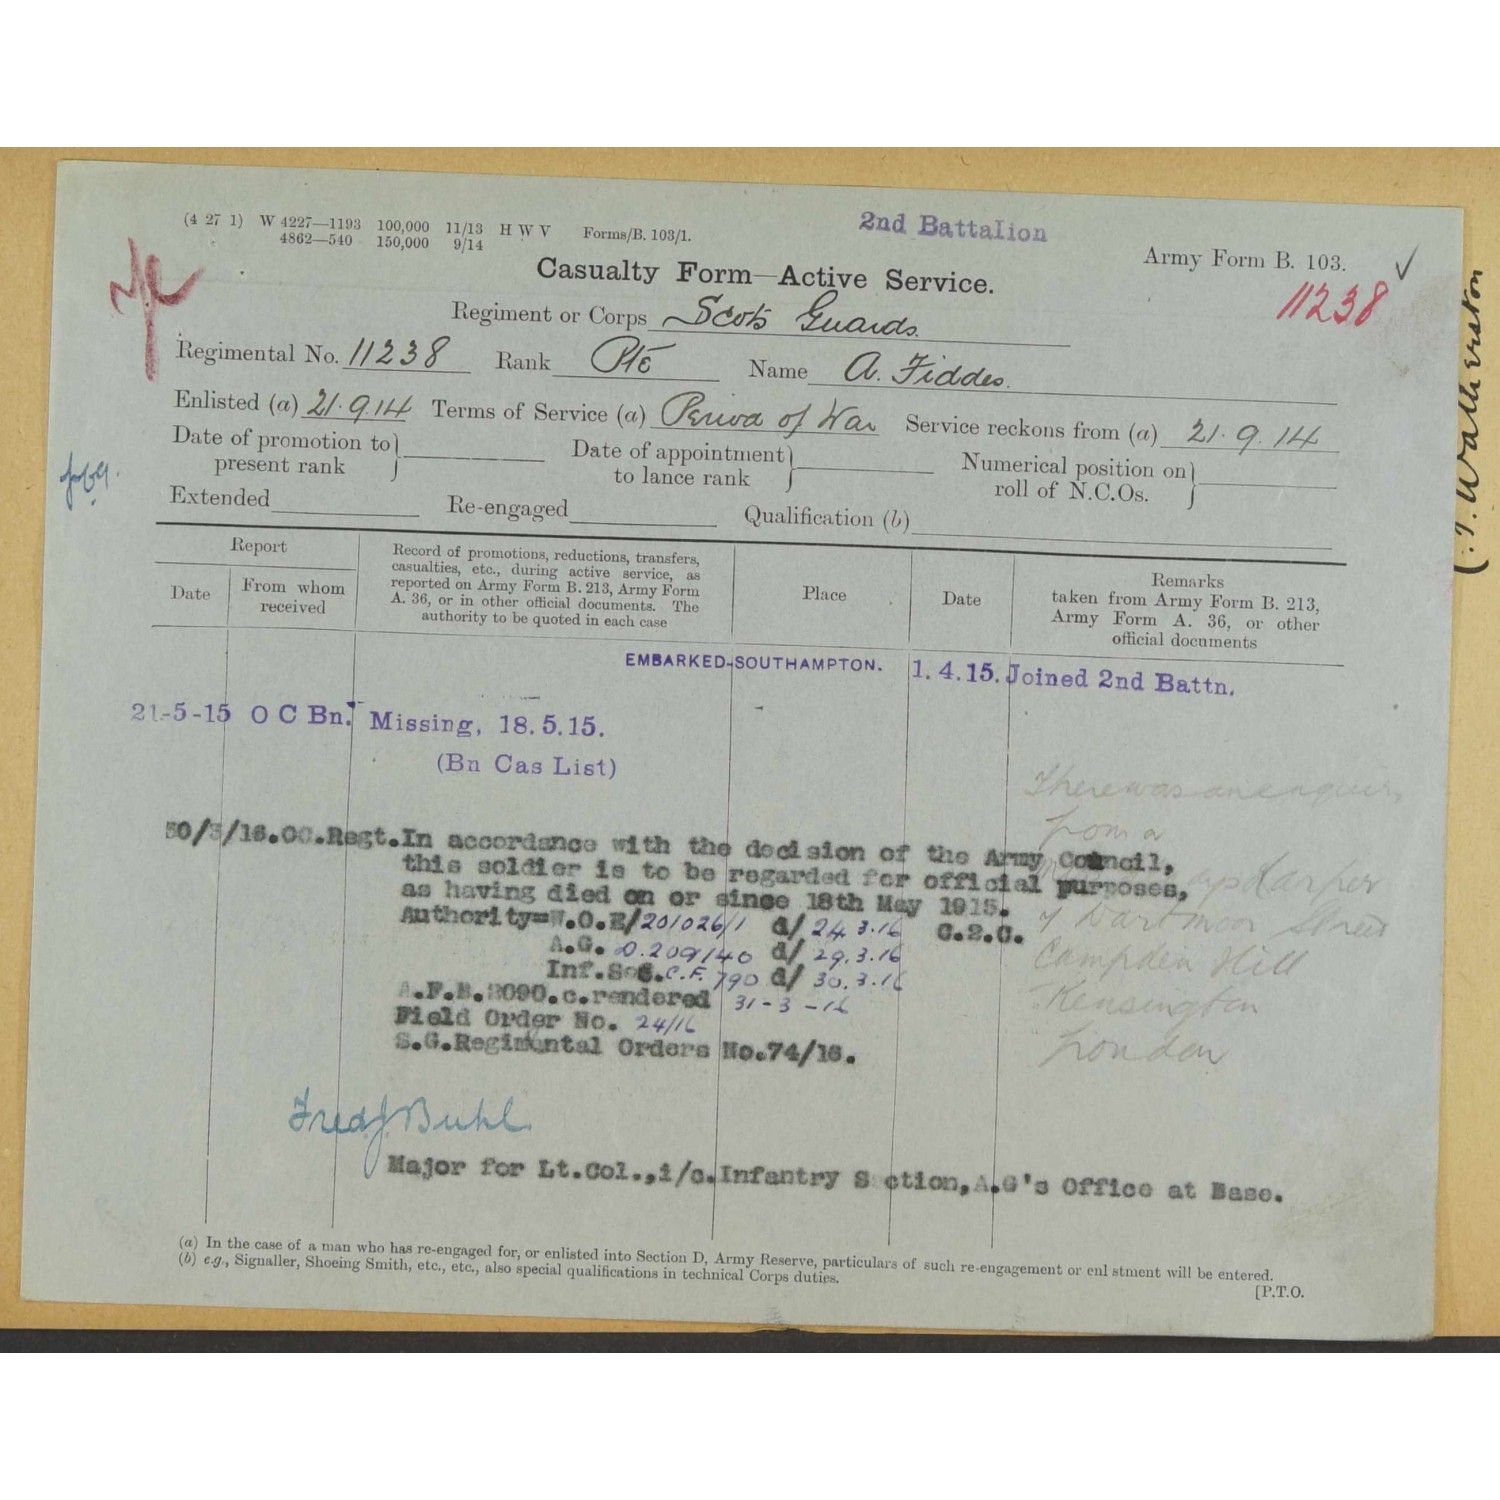 (4 27 1) W 4227—1193 100,000 11/13 H W V Forms/B. 103/1.
4862—540 150,000 9/14
2nd Battalion
Army Form B. 103.
11238
Casualty Form—Active Service.
Regiment or Corps Scots Guards.
Regimental No. 11238 Rank Pte Name A. Fiddes.
Enlisted (a) 21.9.14 Terms of Service (a) Period of War Service reckons from (a) 21.9.14
Date of promotion to present rank
Date of appointment to lance rank
Numerical position on roll of N.C.Os.
Extended Re-engaged Qualification (b)
Report
Date
From whom received
Record of promotions, reductions, transfers,
casualties, etc., during active service, as
reported on Army Form B. 213, Army Form
A. 36, or in other official documents. The
authority to be quoted in each case
Place
Date
Remarks
taken from Army Form B. 213,
Army Form A. 36, or other
official documents
EMBARKED-SOUTHAMPTON. 1.4.15. Joined 2nd Battn.
21-5-15 O C Bn. Missing, 18.5.15.
(Bn Cas List)
There was an enquiry
from a
Harper
Dartmoor Street
Campden Hill
Kensington
London
30/3/16.OC.Regt.In accordance with the decision of the Army Council,
this soldier is to be regarded for official purposes,
as having died on or since 18th May 1915.
Authority=W.O.E/201026/1 d/ 24.3.16 C.2.C.
A.G. D.209140 d/ 29.3.16
Inf.Sec.C.F. 790 d/ 30.3.16
A.F.B.2090.c.rendered 31-3-16
Field Order No. 24/16
S.G.Regimental Orders No.74/16.
Fred J Buhl
Major for Lt.Col.,i/c.Infantry S ction,A.G's Office at Base.
(a) In the case of a man who has re-engaged for, or enlisted into Section D, Army Reserve, particulars of such re-engagement or enl stment will be entered.
(b) e.g., Signaller, Shoeing Smith, etc., etc., also special qualifications in technical Corps duties.
[P.T.O.